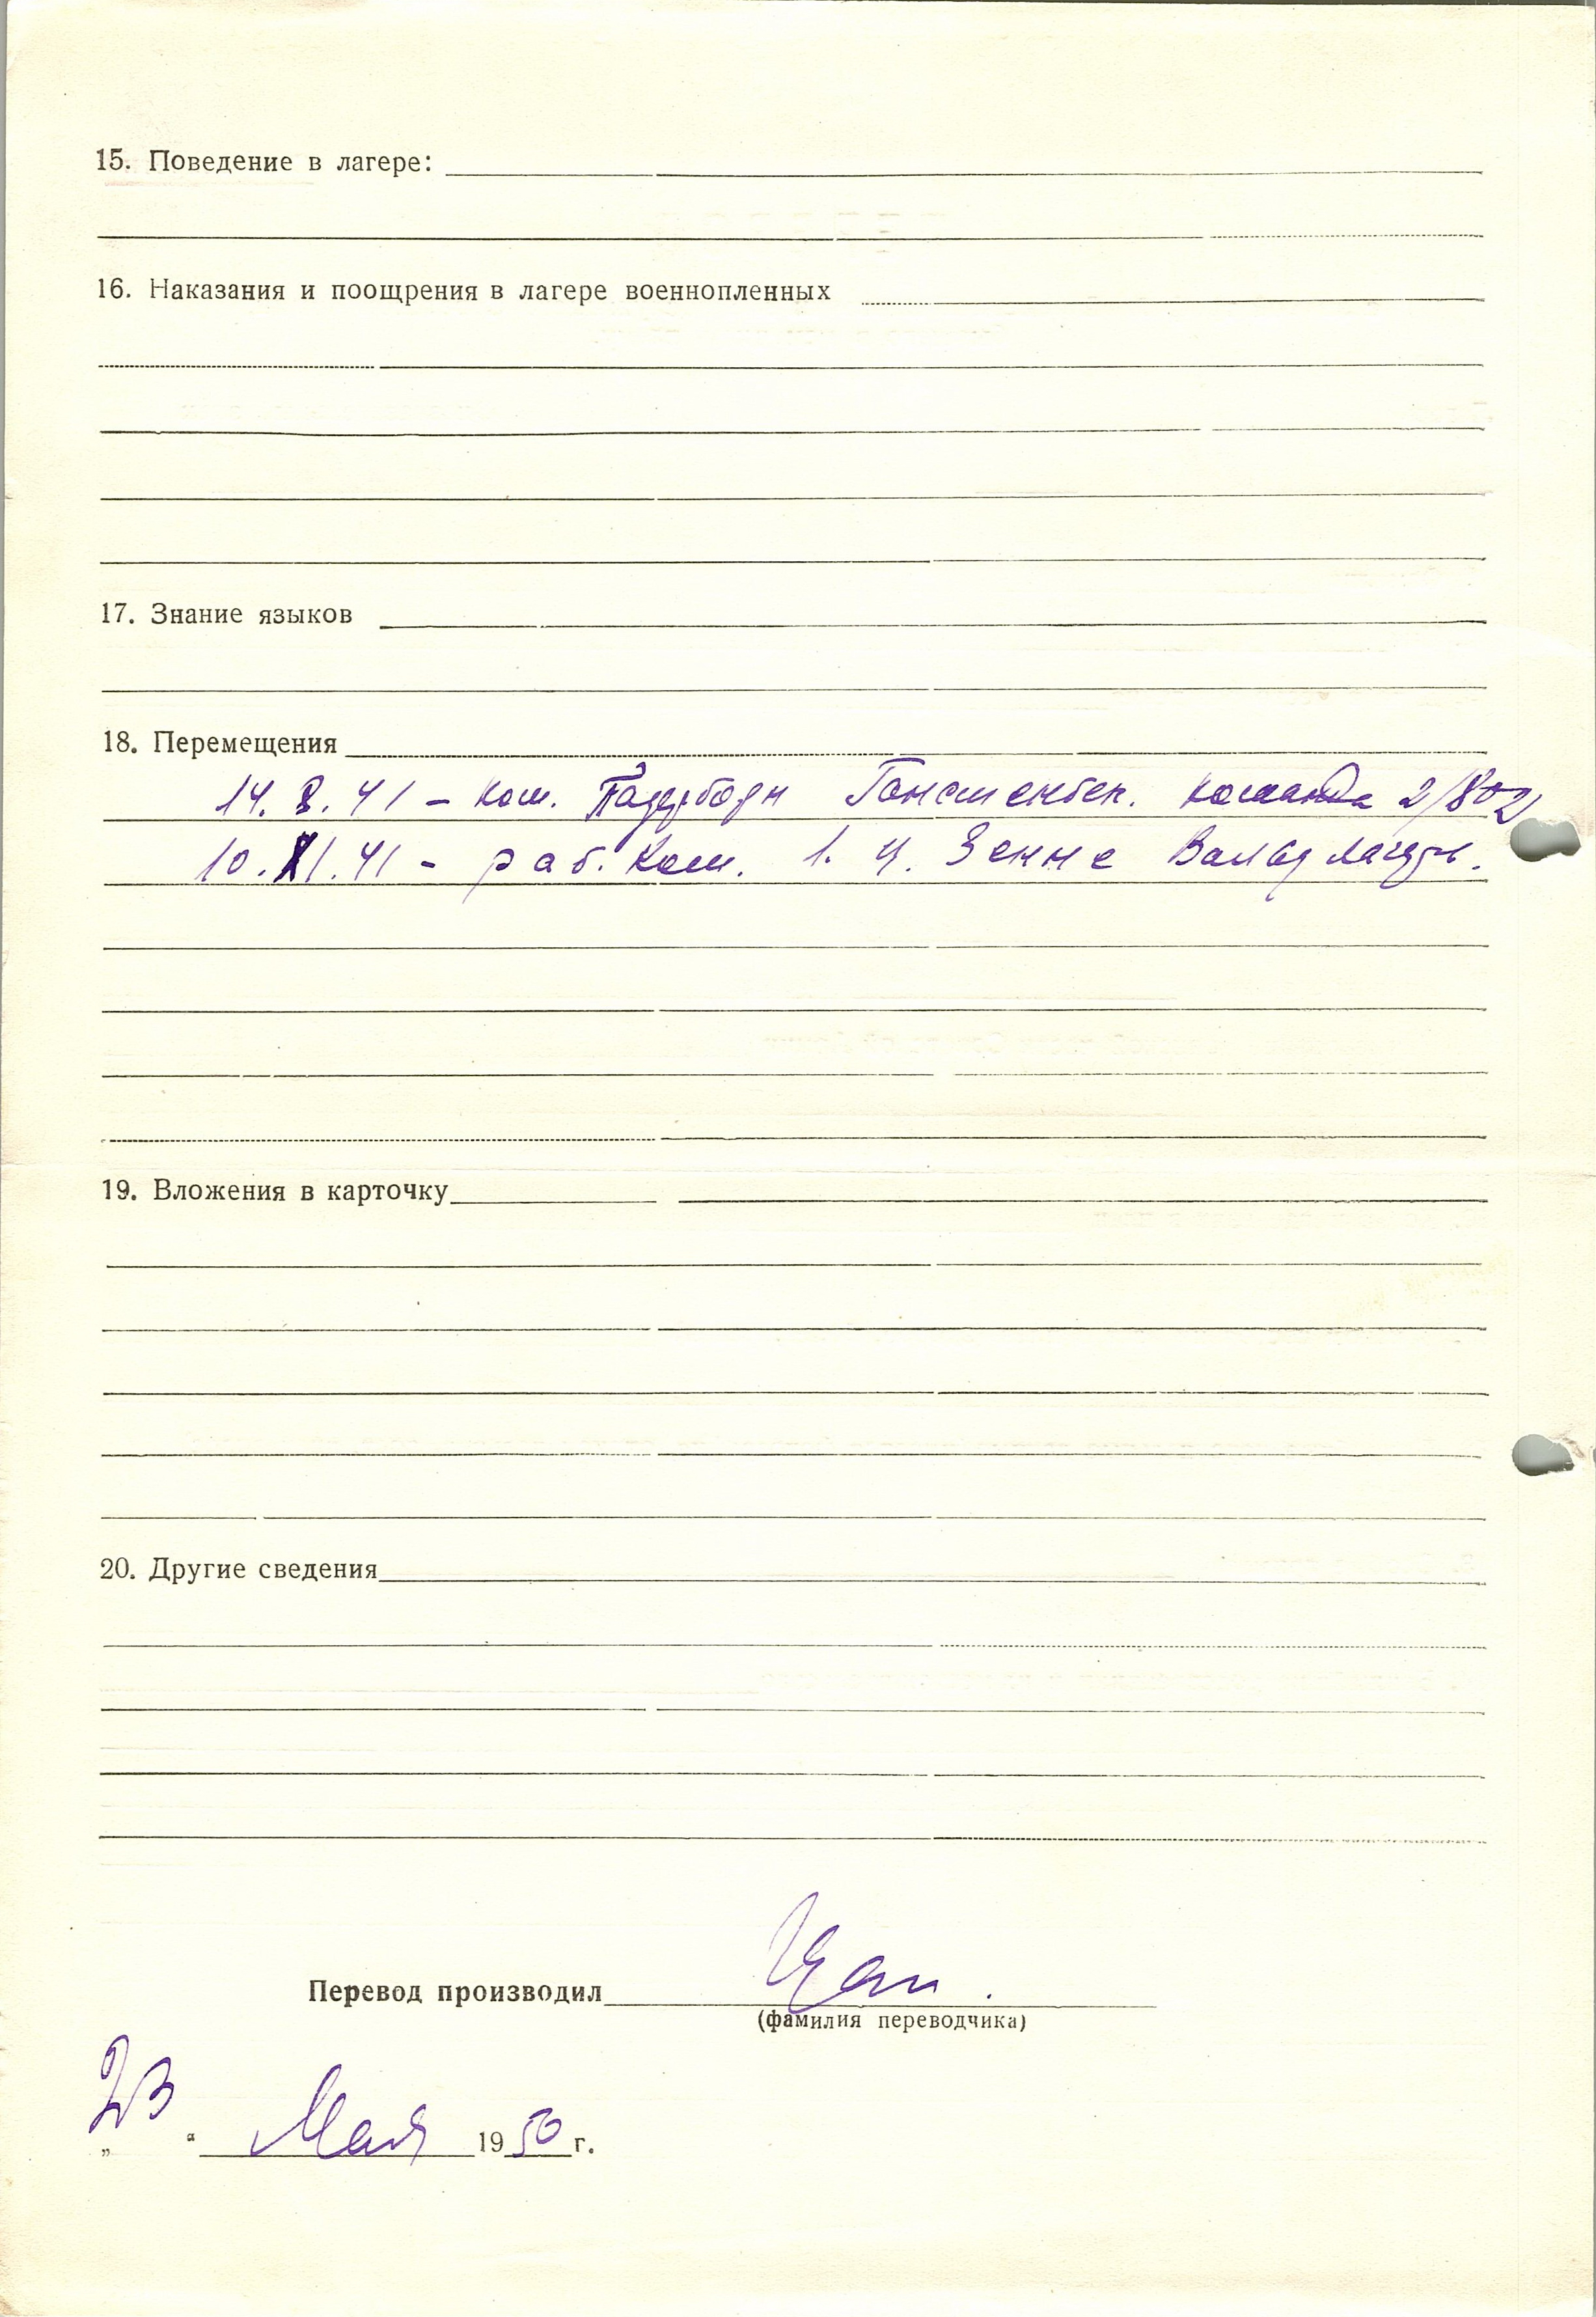 15. Поведение в лагере:
16. Наказания и поощрения в лагере военнопленных
17. Знание языков
18. Перемещения
14. 8. 41 - ком. Падерборн команда 2/802
10. XI. 41 - раб. ком. Зенне
19. Вложения в карточку
20. Другие сведения
Перевод производил
(фамилия переводчика)
„23“ Мая 1950 г.